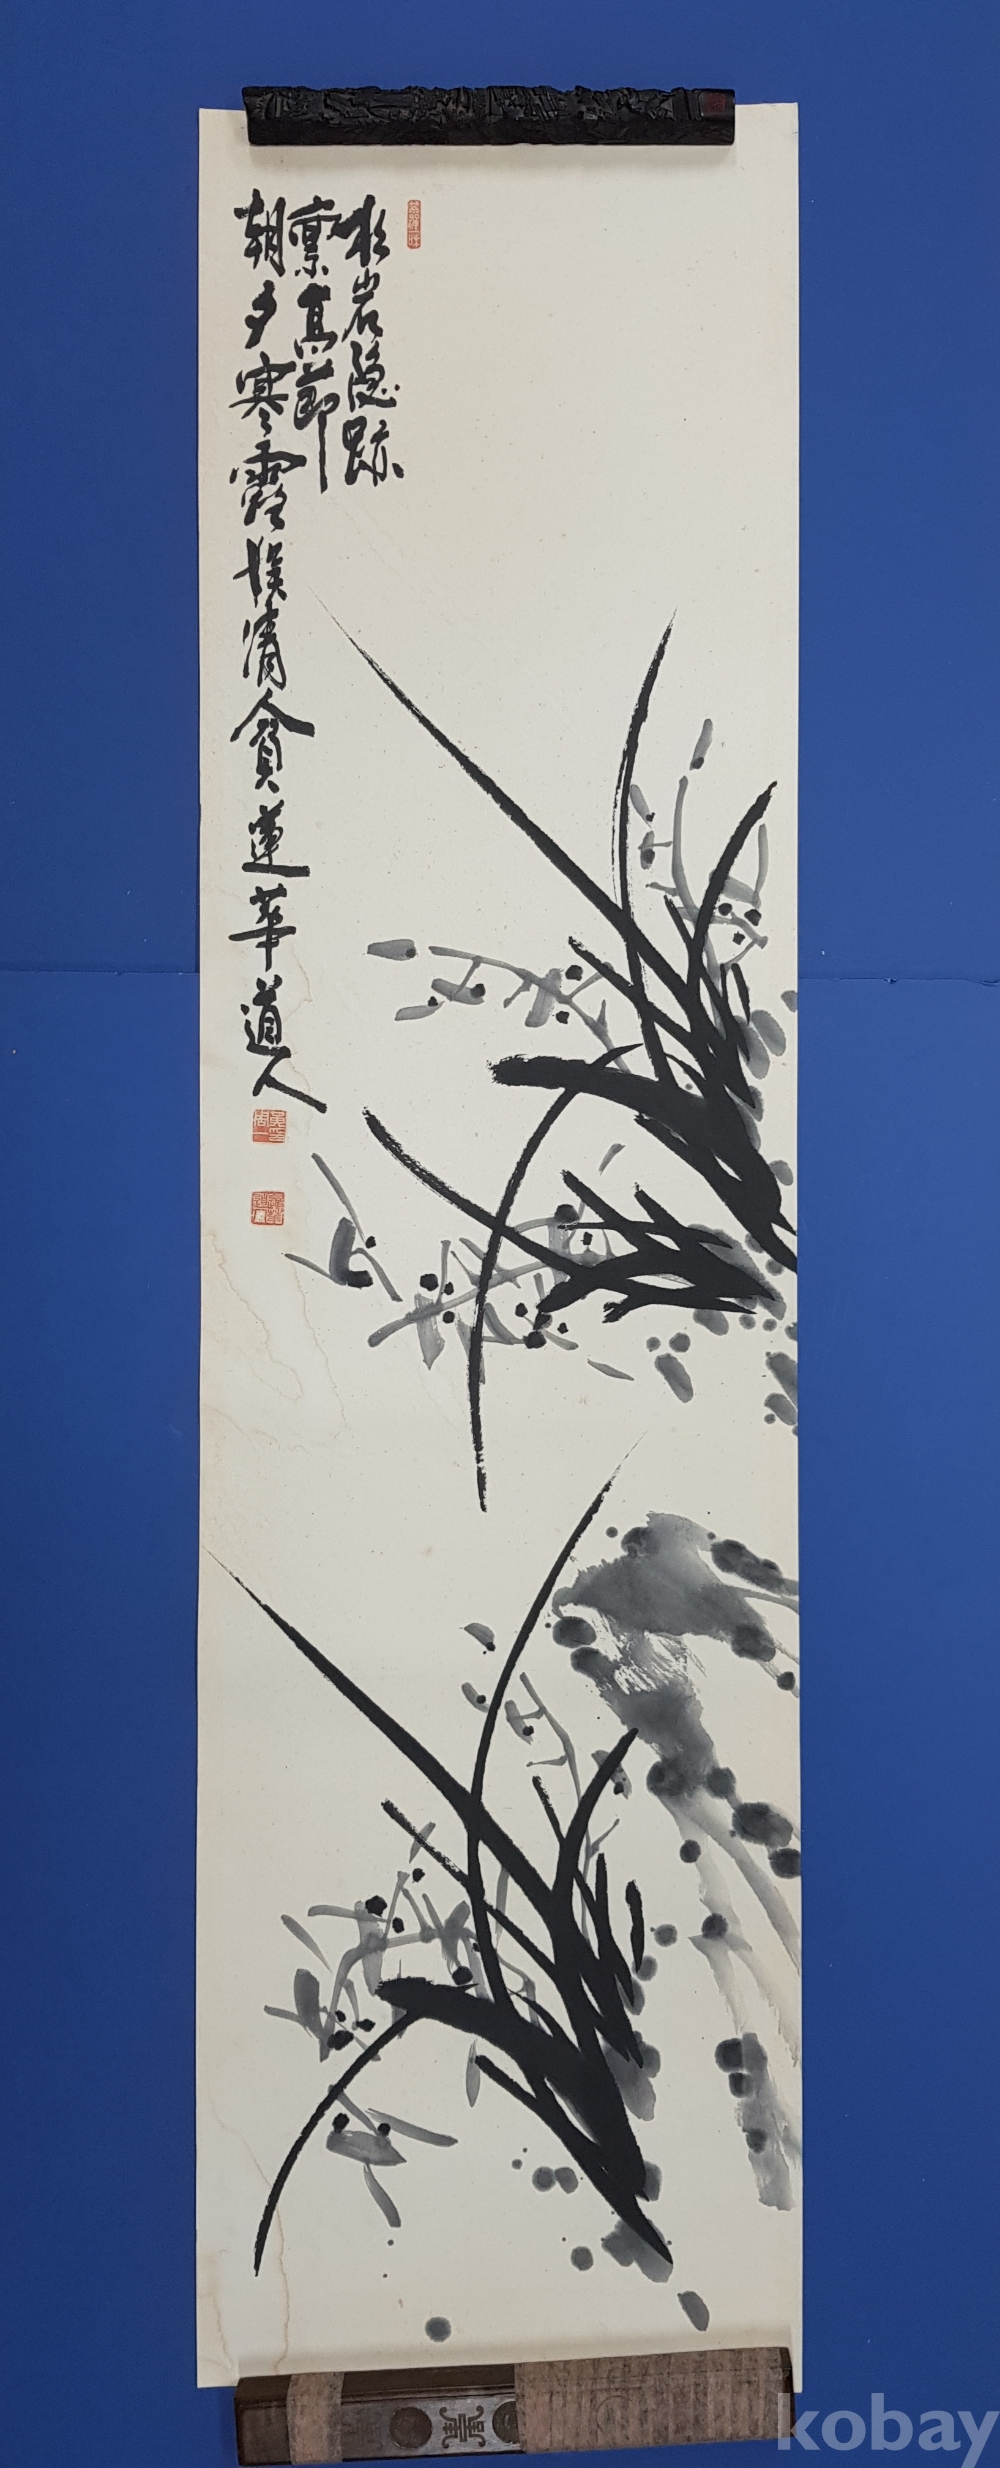 岩隱跡
稟高節
朝夕寒露 淸貧 蓮華道人
kobay